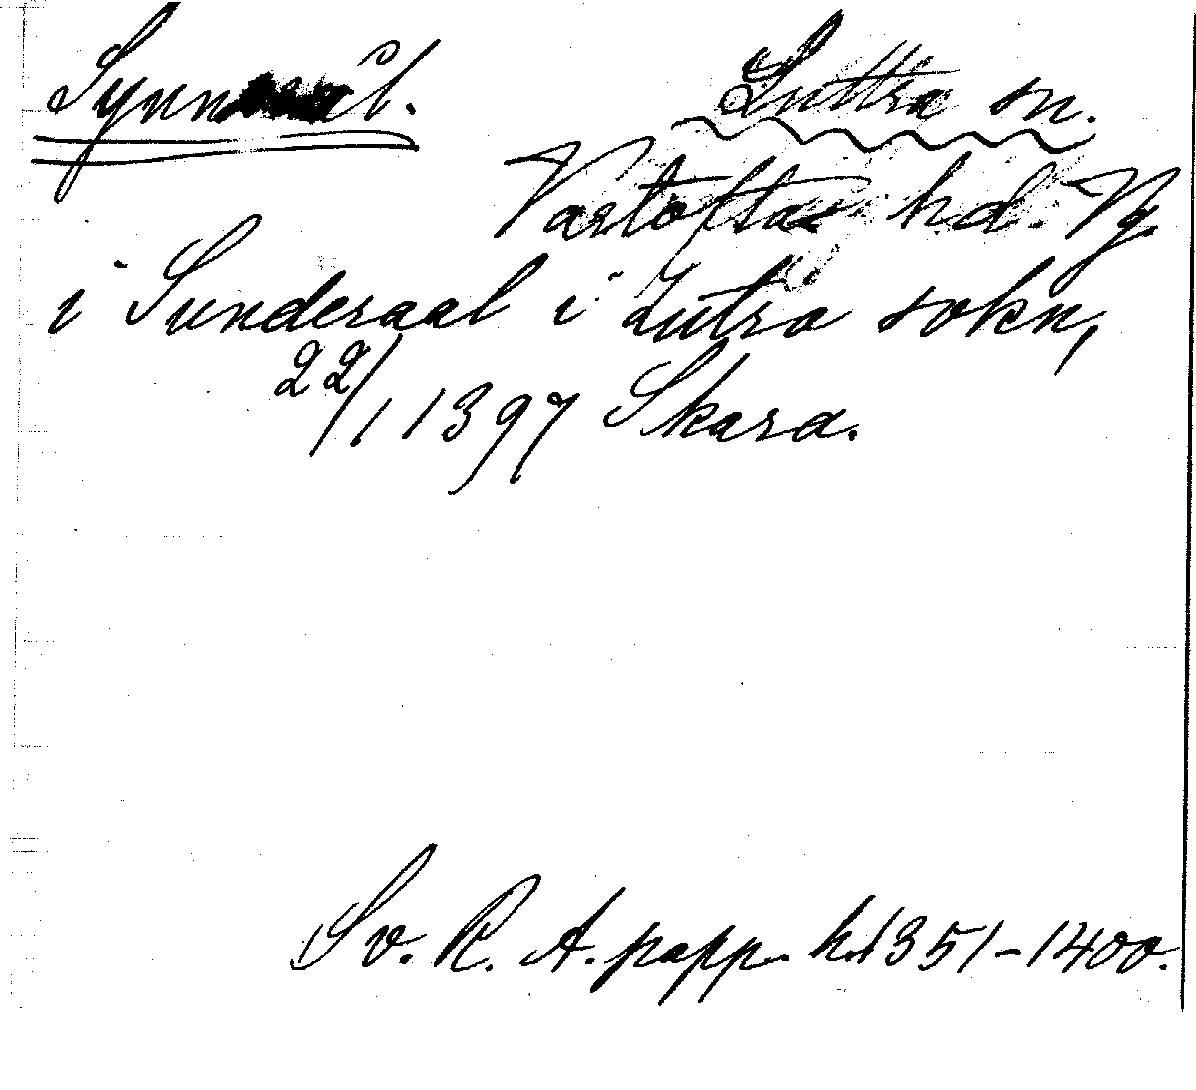 Synnerål. Luttra sn.
Vartofta hd. Vg.
i Sunderaal i Lutra sokn,
22/1 1397 Skara.
Sv. R. A. papp. h. 1351-1400.